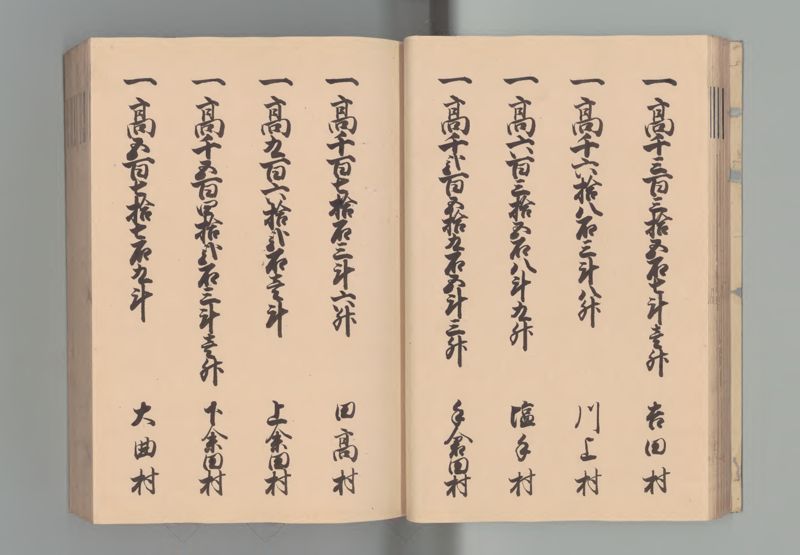 一高千三百三拾五石七斗壱升 吉田村
一高千六拾八石三斗八升 川上村
一高六百三拾五石八斗九升 塩手村
一高千弐百五拾九石五斗三升 手倉田村
一高千百七拾石三斗六升 田高村
一高九百六拾弐石壱斗 上余田村
一高千五百四拾弐石三斗壱升 下余田村
一高五百七拾七石九斗 大曲村